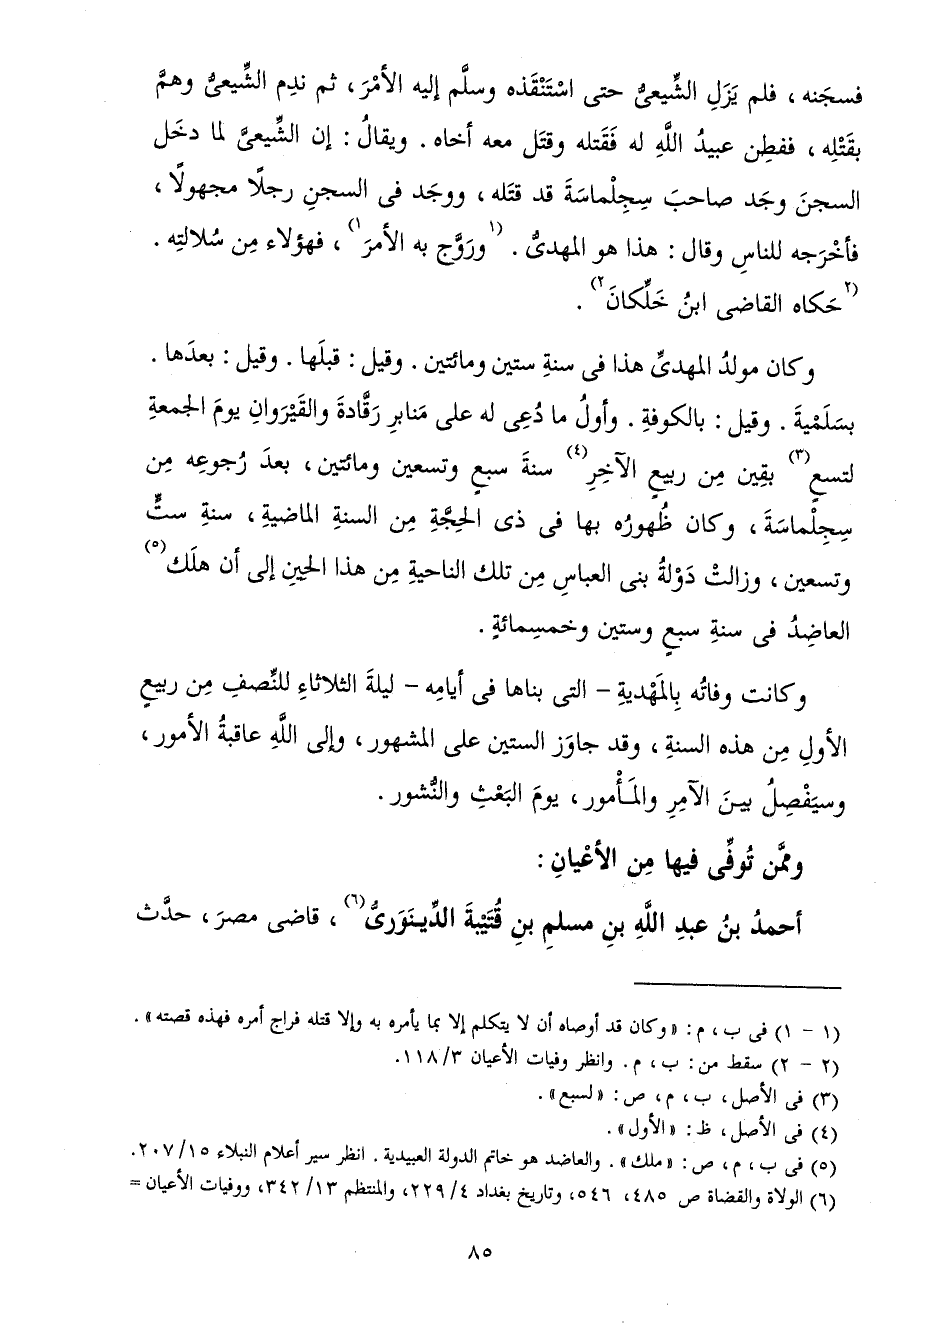 فسجَنه ، فلم يَزَلِ الشِّيعىُّ حتى اسْتَنْقَذه وسلَّم إليه الأمْرَ ، ثم ندِم الشِّيعىُّ وهمَّ
بقَتْلِه ، ففطِن عبيدُ اللَّهِ له فَقَتله وقتَل معه أخاه . ويقالُ : إن الشِّيعىَّ لما دخَل
السجنَ وجَد صاحبَ سِجِلْماسَةَ قد قتَله ، ووجَد فى السجنِ رجلًا مجهولًا ،
فأخْرَجه للناسِ وقال : هذا هو المهدىُّ . (١ورَوَّج به الأمرَ١) ، فهؤلاء مِن سُلالتِه .
(٢حَكاه القاضى ابنُ خَلِّكانَ٢) .
وكان مولدُ المهدىِّ هذا فى سنةِ ستين ومائتين . وقيل : قبلَها . وقيل : بعدَها .
بسَلَمْيةَ . وقيل : بالكوفةِ . وأولُ ما دُعِى له على مَنابرِ رَقَّادةَ والقَيْرَوانِ يومَ الجمعةِ
لتسعٍ(٣) بقِين مِن ربيعٍ الآخِرِ(٤) سنةَ سبعٍ وتسعين ومائتين ، بعدَ رُجوعِه مِن
سِجِلْماسَةَ ، وكان ظُهورُه بها فى ذى الحِجَّةِ مِن السنةِ الماضيةِ ، سنةِ ستٍّ
وتسعين ، وزالتْ دَوْلةُ بنى العباسِ مِن تلك الناحيةِ مِن هذا الحِينِ إلى أن هلَك(٥)
العاضِدُ فى سنةِ سبعٍ وستين وخمسِمائةٍ .
وكانت وفاتُه بِالمَهْديةِ - التى بناها فى أيامِه - ليلةَ الثلاثاءِ للنِّصفِ مِن ربيعٍ
الأولِ مِن هذه السنةِ ، وقد جاوَز الستين على المشهورِ ، وإلى اللَّهِ عاقبةُ الأمورِ ،
وسيَفْصِلُ بينَ الآمِرِ والمَأْمورِ ، يومَ البَعْثِ والنُّشورِ .
وممَّن تُوفِّى فيها مِن الأعْيانِ :
أحمدُ بنُ عبدِ اللَّهِ بنِ مسلمِ بنِ قُتَيْبةَ الدِّينَوَرىُّ(٦) ، قاضى مصرَ ، حدَّث
(١ - ١) فى ب ، م : « وكان قد أوصاه أن لا يتكلم إلا بما يأمره به وإلا قتله فراج أمره فهذه قصته » .
(٢ - ٢) سقط من : ب ، م . وانظر وفيات الأعيان ٣/ ١١٨.
(٣) فى الأصل ، ب ، م ، ص : « لسبع » .
(٤) فى الأصل ، ظ : « الأول » .
(٥) فى ب ، م ، ص : « ملك » . والعاضد هو خاتم الدولة العبيدية . انظر سير أعلام النبلاء ١٥/ ٢٠٧.
(٦) الولاة والقضاة ص ٤٨٥، ٥٤٦، وتاريخ بغداد ٤/ ٢٢٩، والمنتظم ١٣/ ٣٤٢، ووفيات الأعيان =
٨٥